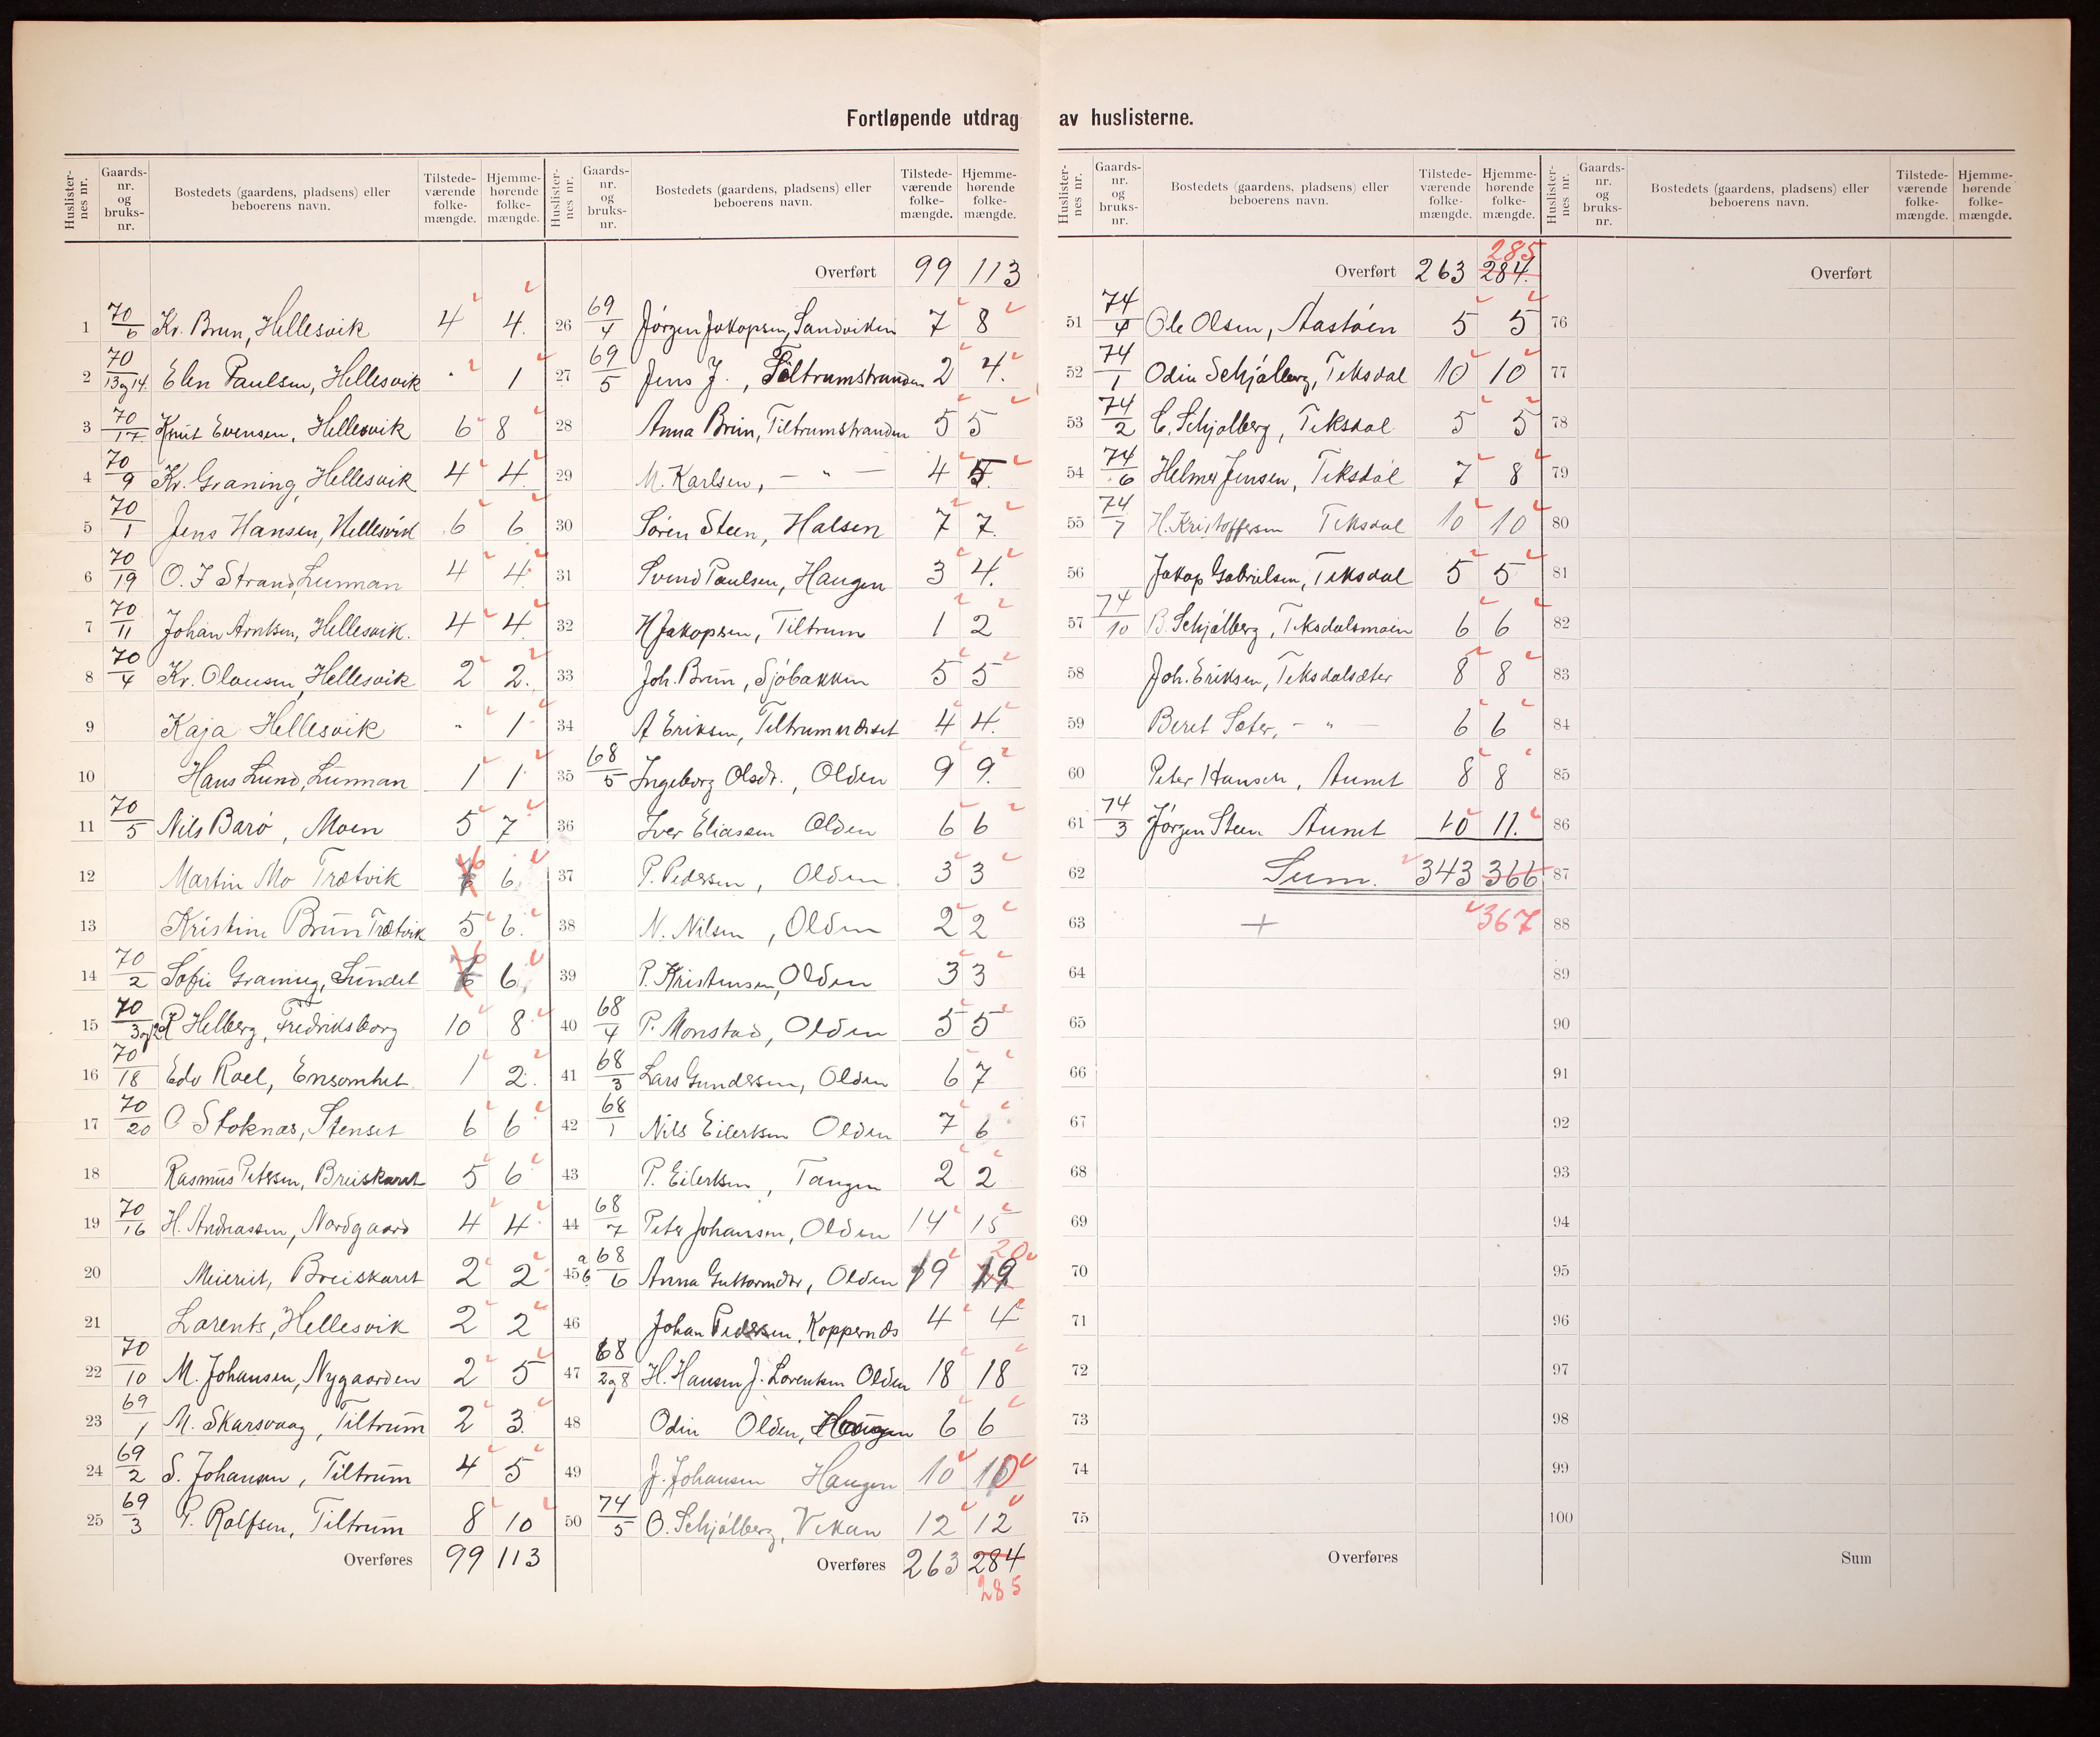 Fortløpende utdrag av huslisterne.
Huslister-nes nr. Gaards-nr. og bruks-nr. Bostedets (gaardens, pladsens) eller beboerens navn. Tilstede-værende folke-mængde. Hjemme-hørende folke-mængde.
1 70/6 Kr. Brun, Hellesvik 4 4.
2 70/13 og 14. Elen Paulsen, Hellesvik - 1
3 70/17 Knut Evensen, Hellesvik 6 8
4 70/9 Kr. Graning, Hellesvik 4 4.
5 70/1 Jens Hansen, Hellesvik 6 6
6 70/19 O. J Strand, Lunman 4 4.
7 70/11 Johan Arntsen, Hellesvik. 4 4.
8 70/4 Kr. Olausen, Hellesvik 2 2.
9 Kaja Hellesvik - 1
10 Hans Lund, Lunman 1 1
11 70/5 Nils Barø, Moen 5 7
12 Martin Mo Trætvik 6 6
13 Kristine Brun Trætvik 5 6.
14 70/2 Sofie Graning, Sundet 6 6
15 70/3 og 12 P. Helberg, Fredriksborg 10 8
16 70/18 Edv Roel, Ensomhet 1 2.
17 70/20 O Stoknes, Stenset 6 6
18 Rasmus Petersen, Breiskaret 5 6
19 70/16 H. Andreassen, Nordgaard 4 4
20 Meieriet, Breiskaret 2 2
21 Larents, Hellesvik 2 2
22 70/10 M. Johansen, Nygaarden 2 5
23 69/1 M. Skarsvaag, Tiltrum 2 3.
24 69/2 S. Johansen, Tiltrum 4 5
25 69/3 P. Rolfsen, Tiltrum 8 10
Overføres 99 113
Huslister-nes nr. Gaards-nr. og bruks-nr. Bostedets (gaardens, pladsens) eller beboerens navn. Tilstede-værende folke-mængde. Hjemme-hørende folke-mængde.
Overført 99 113
26 69/4 Jørgen Jakopsen, Sandviken 7 8
27 69/5 Jens J., Tiltrumstranden 2 4.
28 Anna Brun, Tiltrumstranden 5 5
29 M. Karlsen, - " - 4 5.
30 Søren Steen, Halsen 7 7.
31 Svend Paulsen, Haugen 3 4.
32 H Jakopsen, Tiltrum 1 2
33 Joh. Brun, Sjøbakken 5 5
34 A Eriksen, Tiltrumneset 4 4.
35 68/5 Ingeborg Olsdt., Olden 9 9.
36 Iver Eliassen Olden 6 6
37 P. Pedersen, Olden 3 3
38 N. Nilsen, Olden 2 2
39 P. Kristensen, Olden 3 3
40 68/4 P. Monstad, Olden 5 5
41 68/3 Lars Gundersen, Olden 6 7
42 68/1 Nils Eilertsen Olden 7 6
43 P. Eilertsen, Tangen 2 2
44 68/7 Peter Johansen, Olden 14 15
20
45 a b 68/6 Anna Guttormdtr, Olden 19 19
46 Johan Pedersen, Koppernes 4 4
47 68/2 og 8 H. Hansen J. Lorentsen Olden 18 18
48 Odin Olden, Haugen 6 6
49 J. Johansen Haugen 10 10
50 74/5 O. Schjølberg, Vikan 12 12
Overføres 263 284
285
Huslister-nes nr. Gaards-nr. og bruks-nr. Bostedets (gaardens, pladsens) eller beboerens navn. Tilstede-værende folke-mængde. Hjemme-hørende folke-mængde.
285
Overført 263 284.
51 74/4 Ole Olsen, Aastøen 5 5
52 74/1 Odin Schjølberg, Teksdal 10 10
53 74/2 C. Schjølberg, Teksdal 5 5
54 74/6 Helmer Jensen, Teksdal 7 8
55 74/7 H. Kristoffersen Teksdal 10 10
56 Jakop Gabrielsen, Teksdal 5 5
57 74/10 B. Schjølberg, Teksdalsmoen 6 6
58 Joh. Eriksen, Teksdalsæter 8 8
59 Beret Sæter, - " - 6 6
60 Peter Hansen, Aunet 8 8
61 74/3 Jørgen Steen Aunet 10 11.
62 Sum. 343 366
63 + 367
64
65
66
67
68
69
70
71
72
73
74
75
Overføres
Huslister-nes nr. Gaards-nr. og bruks-nr. Bostedets (gaardens, pladsens) eller beboerens navn. Tilstede-værende folke-mængde. Hjemme-hørende folke-mængde.
Overført
76
77
78
79
80
81
82
83
84
85
86
87
88
89
90
91
92
93
94
95
96
97
98
99
100
Sum